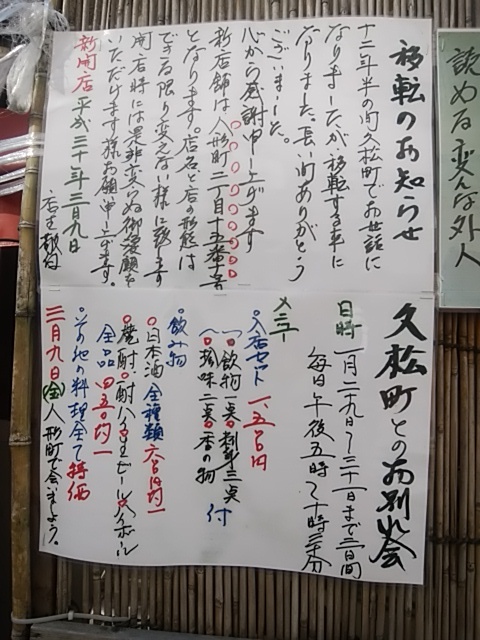 移転のお知らせ
十二年半の間久松町でお世話に
なりましたが移転する事に
なりました。長い間ありがとう
ございました。
心から感謝申し上げます
新店舗は人形町二丁目十五番十号
となります。店名と店の形態は
できる限り変えない様に致します
開店時には是非変らぬ御愛顧を
いただけます様お願い申し上げます。
新開店 平成三十年三月九日
店主敬白
久松町とのお別れ会
日時 一月二十九日〜三十一日まで三日間
毎日午後五時〜十時三十分
メニュー
○入店セット 一、五〇〇円
(一〇飲物一点〇刺身三点
〇珍味二点〇香の物) 付
○飲み物
○日本酒全種類六百円均一
○焼酎〇酎ハイ〇生ビール〇ハイボール
全品四五〇均一
○その他の料理全て特価
三月九日(金)人形町で会いましょう。
読める変な外人